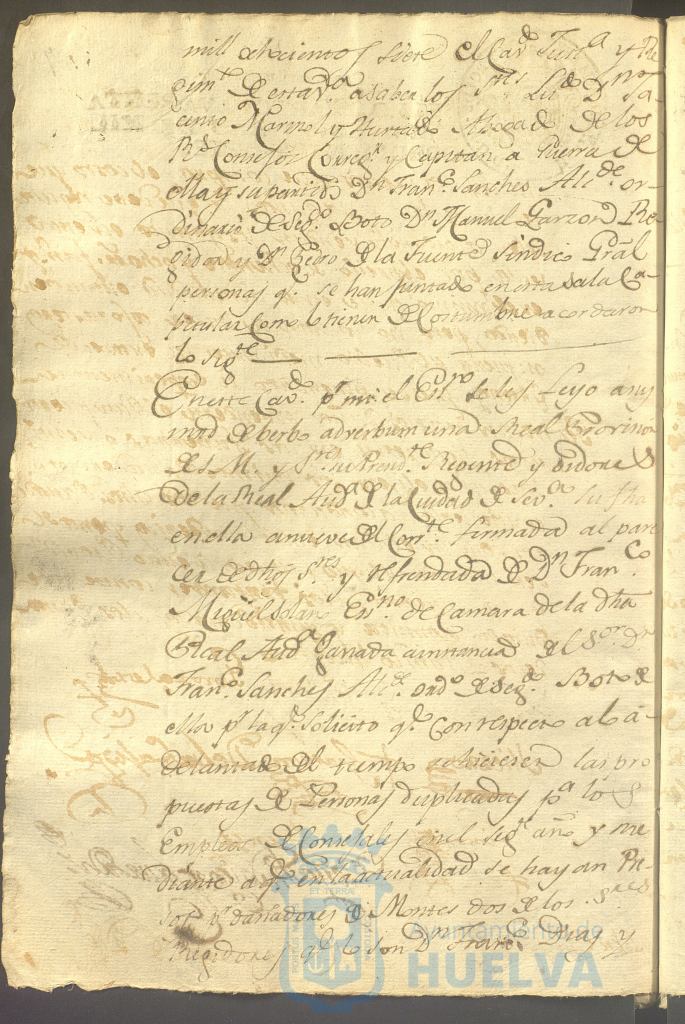 mill ochocientos siete el Cavdo Justa y Re
gimto de esta Va asaber los Sres Lizdo Dn Ja
cinto Marmol y Hurtado Abogado de los
Rs Consejos Corregr y Capitan a Guerra de
ella y su partido Dn Franco Sanches Alcde or
dinario de segdo Boto Dn Manuel Garzon Re
gidor y Dn Pedro de la Fuente Sindico Gral
personas qe se han juntado en esta Sala Ca
pitular como lo tienen de costumbre acordaron
lo sigte
En este Cavdo pr mi el Esno se les leyo a
de berbo adverbum una Real Provision
de S. M. y Sres su Presidte Regente y Oidores
de la Real Auda de la Ciudad de Seva su fha
en ella a nueve del Corrte firmada al pare
cer de dhos Sres y refrendada de Dn Franco
Miguel Solano Esno de Camara de la dha
Real Auda ganada a instancia del Sor Dn
Franco Sanches Alce ordo de segdo Boto de
ella pr la qe solicito qe con respecto a lo a
delantado del tiempo se hiciesen las pro
puestas de Personas duplicadas pa los
Empleos de Consejales en el sigte año y me
diante a qe en la actualidad se hayan Pre
sos pr dañadores de Montes dos de los Sres
Regidores qe lo son Dn Franco Dias y
ET TERRÆ
Ayuntamiento de
HUELVA